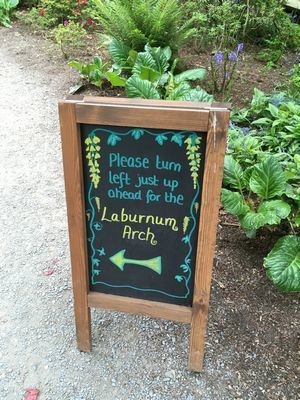 Please turn
left just up
ahead for the
Laburnum
Arch